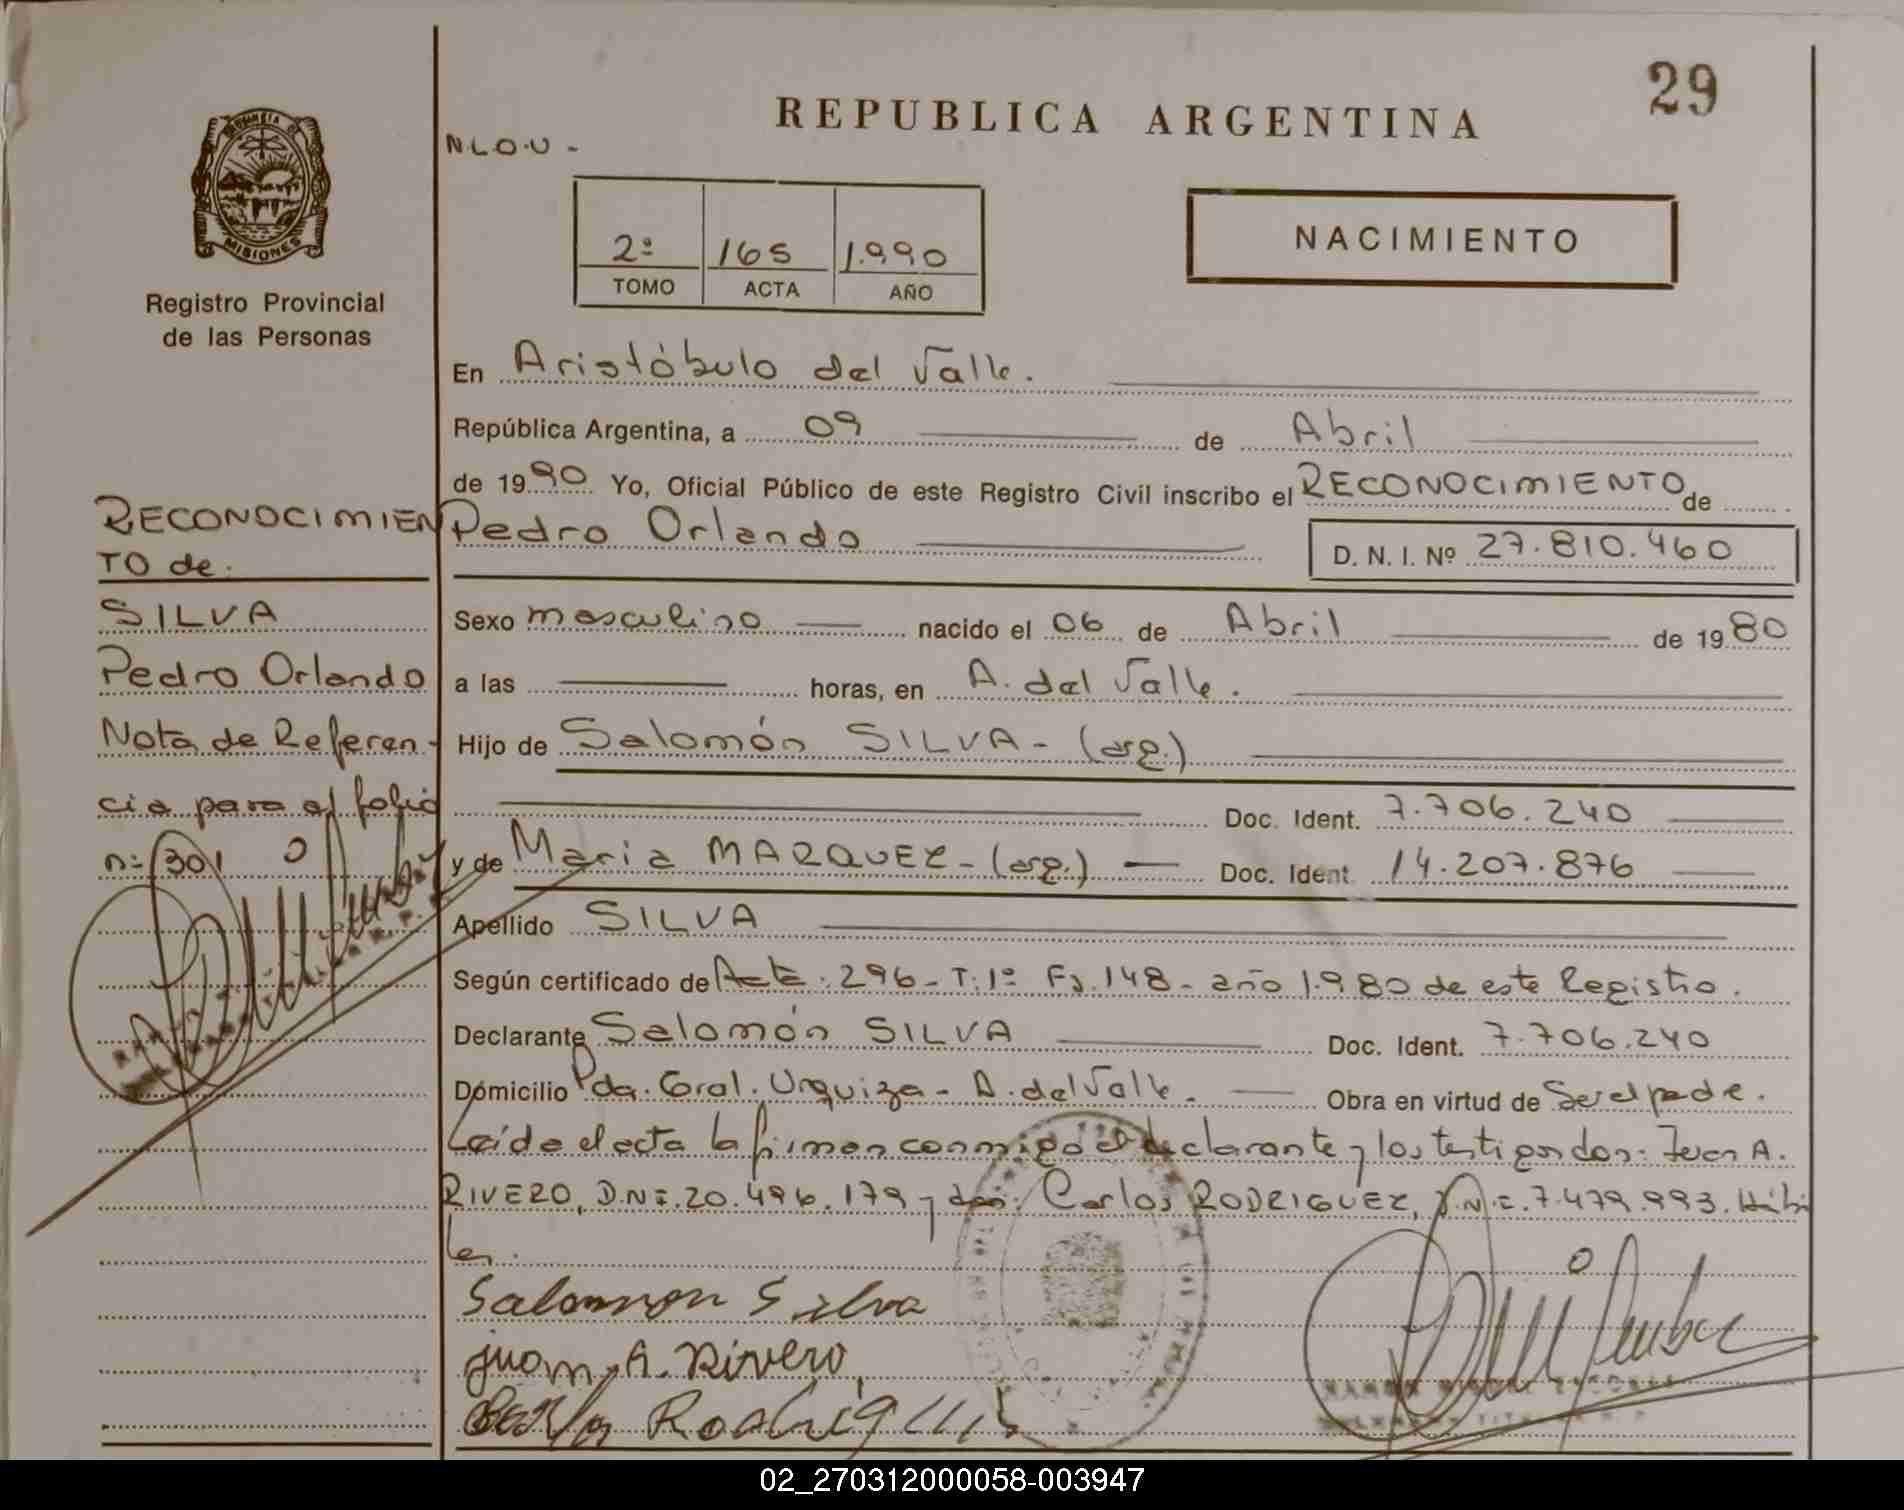 29
REPUBLICA ARGENTINA
PROVINCIA DE
MISIONES
Registro Provincial
de las Personas
N.L.O.U -
2º 165 1.990
TOMO ACTA AÑO
NACIMIENTO
En Aristóbulo del Valle.
República Argentina, a 09 de Abril
de 1990 Yo, Oficial Público de este Registro Civil inscribo el RECONOCIMIENTO de
Pedro Orlando D. N. I. Nº 27.810.460
Sexo masculino nacido el 06 de Abril de 1980
a las horas, en A. del Valle.
Hijo de Salomón SILVA - (arg.)
Doc. Ident. 7.706.240
y de Maria MARQUEZ - (arg.) Doc. Ident. 14.207.876
Apellido SILVA
Según certificado de Acta: 296 - T: 1º Fj. 148 - año 1.980 de este Registro.
Declarante Salomón SILVA Doc. Ident. 7.706.240
Domicilio Pda. Gral. Urquiza - A. del Valle. Obra en virtud de Ser el padre.
Leída el acta la firman conmigo el declarante y los testigos don: Juan A.
RIVERO, D.N.I. 20.496.179 y don: Carlos RODRIGUEZ, D.N.I. 7.479.993. Hábi
les.
Salomon Silva
juan A. Rivero
Rodriguez
RECONOCIMIEN
TO de:
SILVA
Pedro Orlando
Nota de Referen-
cia para el folio
nº 301
02_270312000058-003947